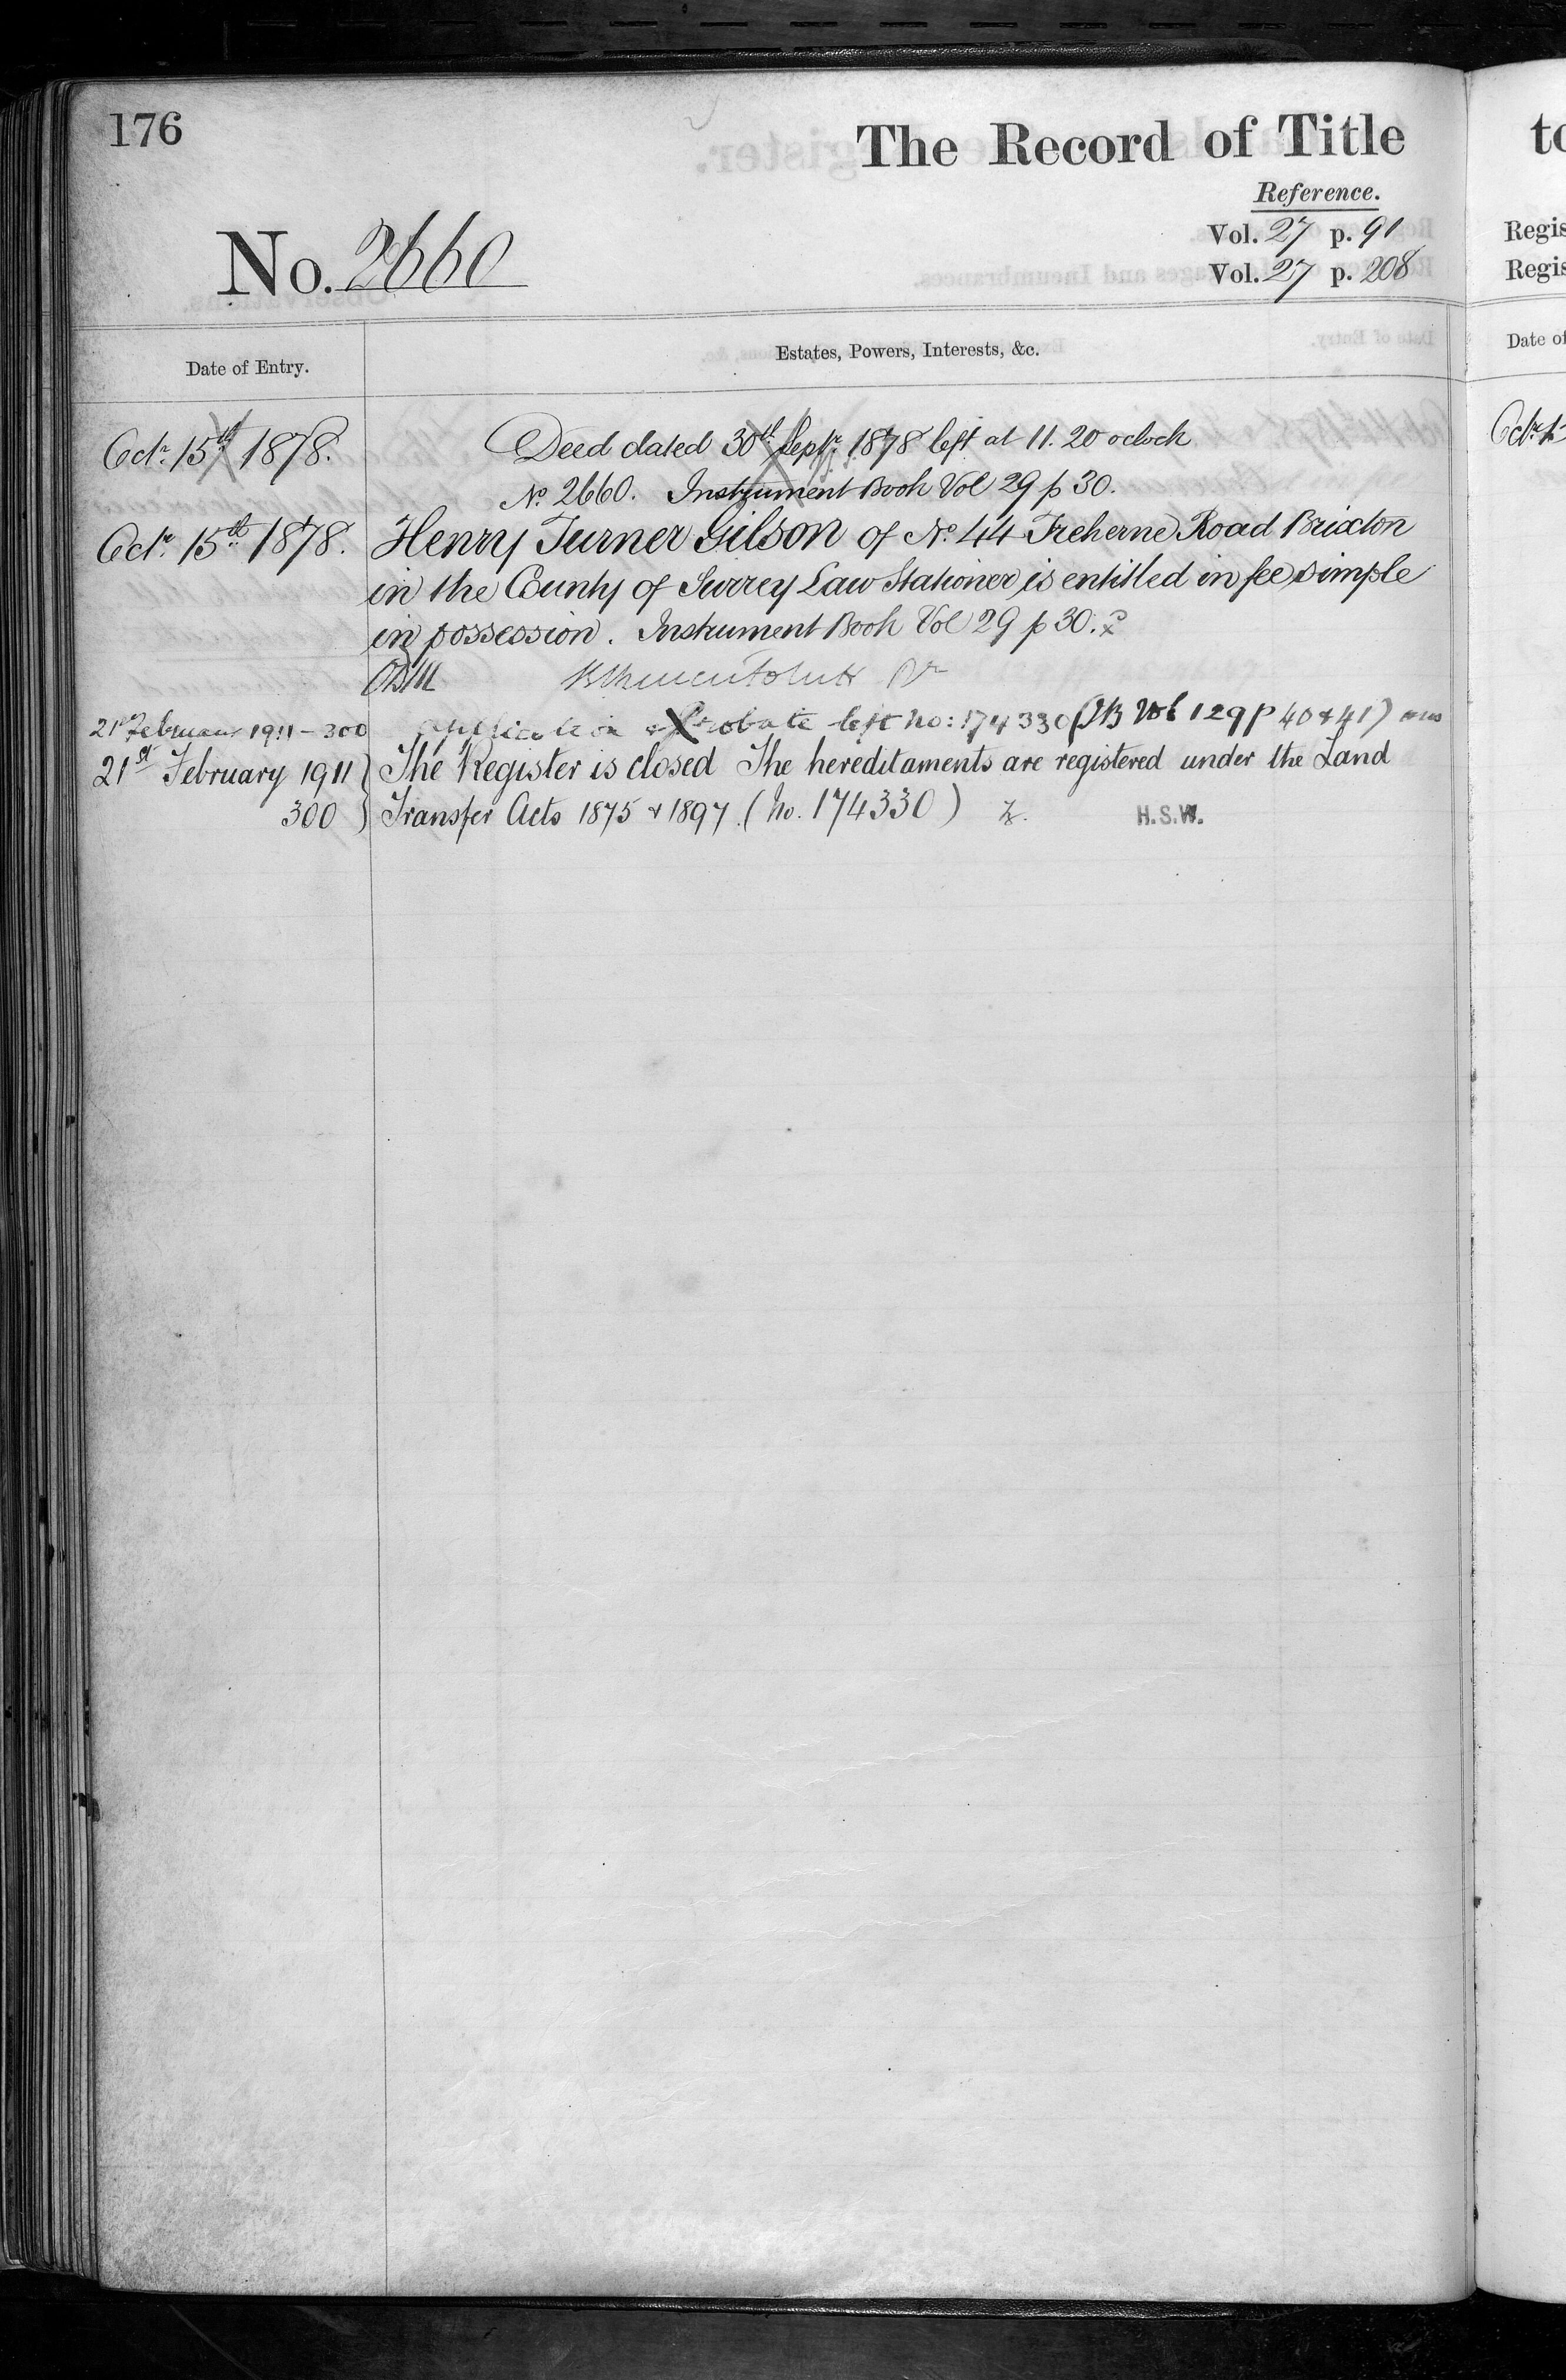 176
The Record of Title
Reference.
No. 2660
Vol. 27 p. 91
Vol. 27 p. 208
Date of Entry.
Estates, Powers, Interests, &c.
Octr. 15th 1878.
Deed dated 30th Septr. 1878 left at 11.20 oclock
No. 2660. Instrument Book Vol 29 p 30.
Octr. 15th 1878.
Henry Turner Gilson of No. 44 Treherne Road Brixton
in the County of Surrey Law Stationer is entitled in fee simple
in possession. Instrument Book Vol 29 p 30.
21st February 1911 - 300
Application & Probate left No: 174330 (IB Vol 129 p 40 & 41)
21st February 1911
300
The Register is closed The hereditaments are registered under the Land
Transfer Acts 1875 & 1897. (No. 174330)
H.S.W.
to
Regis
Regis
Date of
Octr. 1